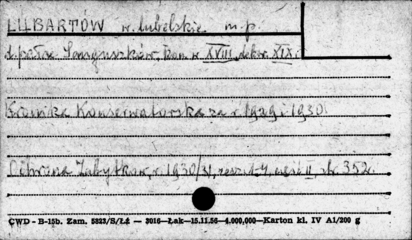 LUBARTÓW w. lubelskie m.p.
d. pałac Sanguszków, kon. w. XVIII, dekor. XIX.
Kronika Konserwatorska za r. 1929 i 1930.
Ochrona Zabytków, r. 1930/31, część II, str. 352.
CWD - B-15b. Zam. 5823/S/Łź — 3016—Łak—15.11.56—4.000,000—Karton kl. IV A1/200 g